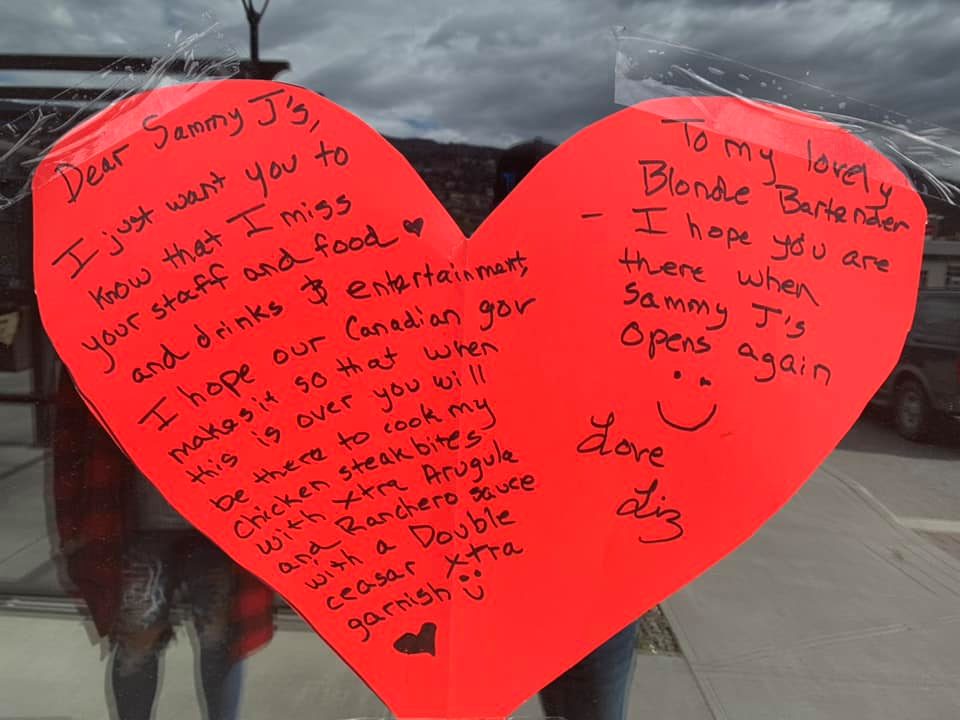 Dear Sammy J's,
I just want you to
know that I miss
your staff and food ♥
and drinks & entertainment,
I hope our Canadian gov
makes it so that when
this is over you will
be there to cook my
chicken steak bites
with xtra Arugula
and Ranchero sauce
with a Double
ceasar xtra
garnish
To my lovely
Blonde Bartender
- I hope you are
there when
Sammy J's
opens again
Love
Liz